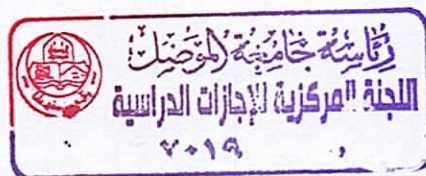 رئاسة جامعة الموصل
اللجنة المركزية للإجازات الدراسية
٢٠١٩